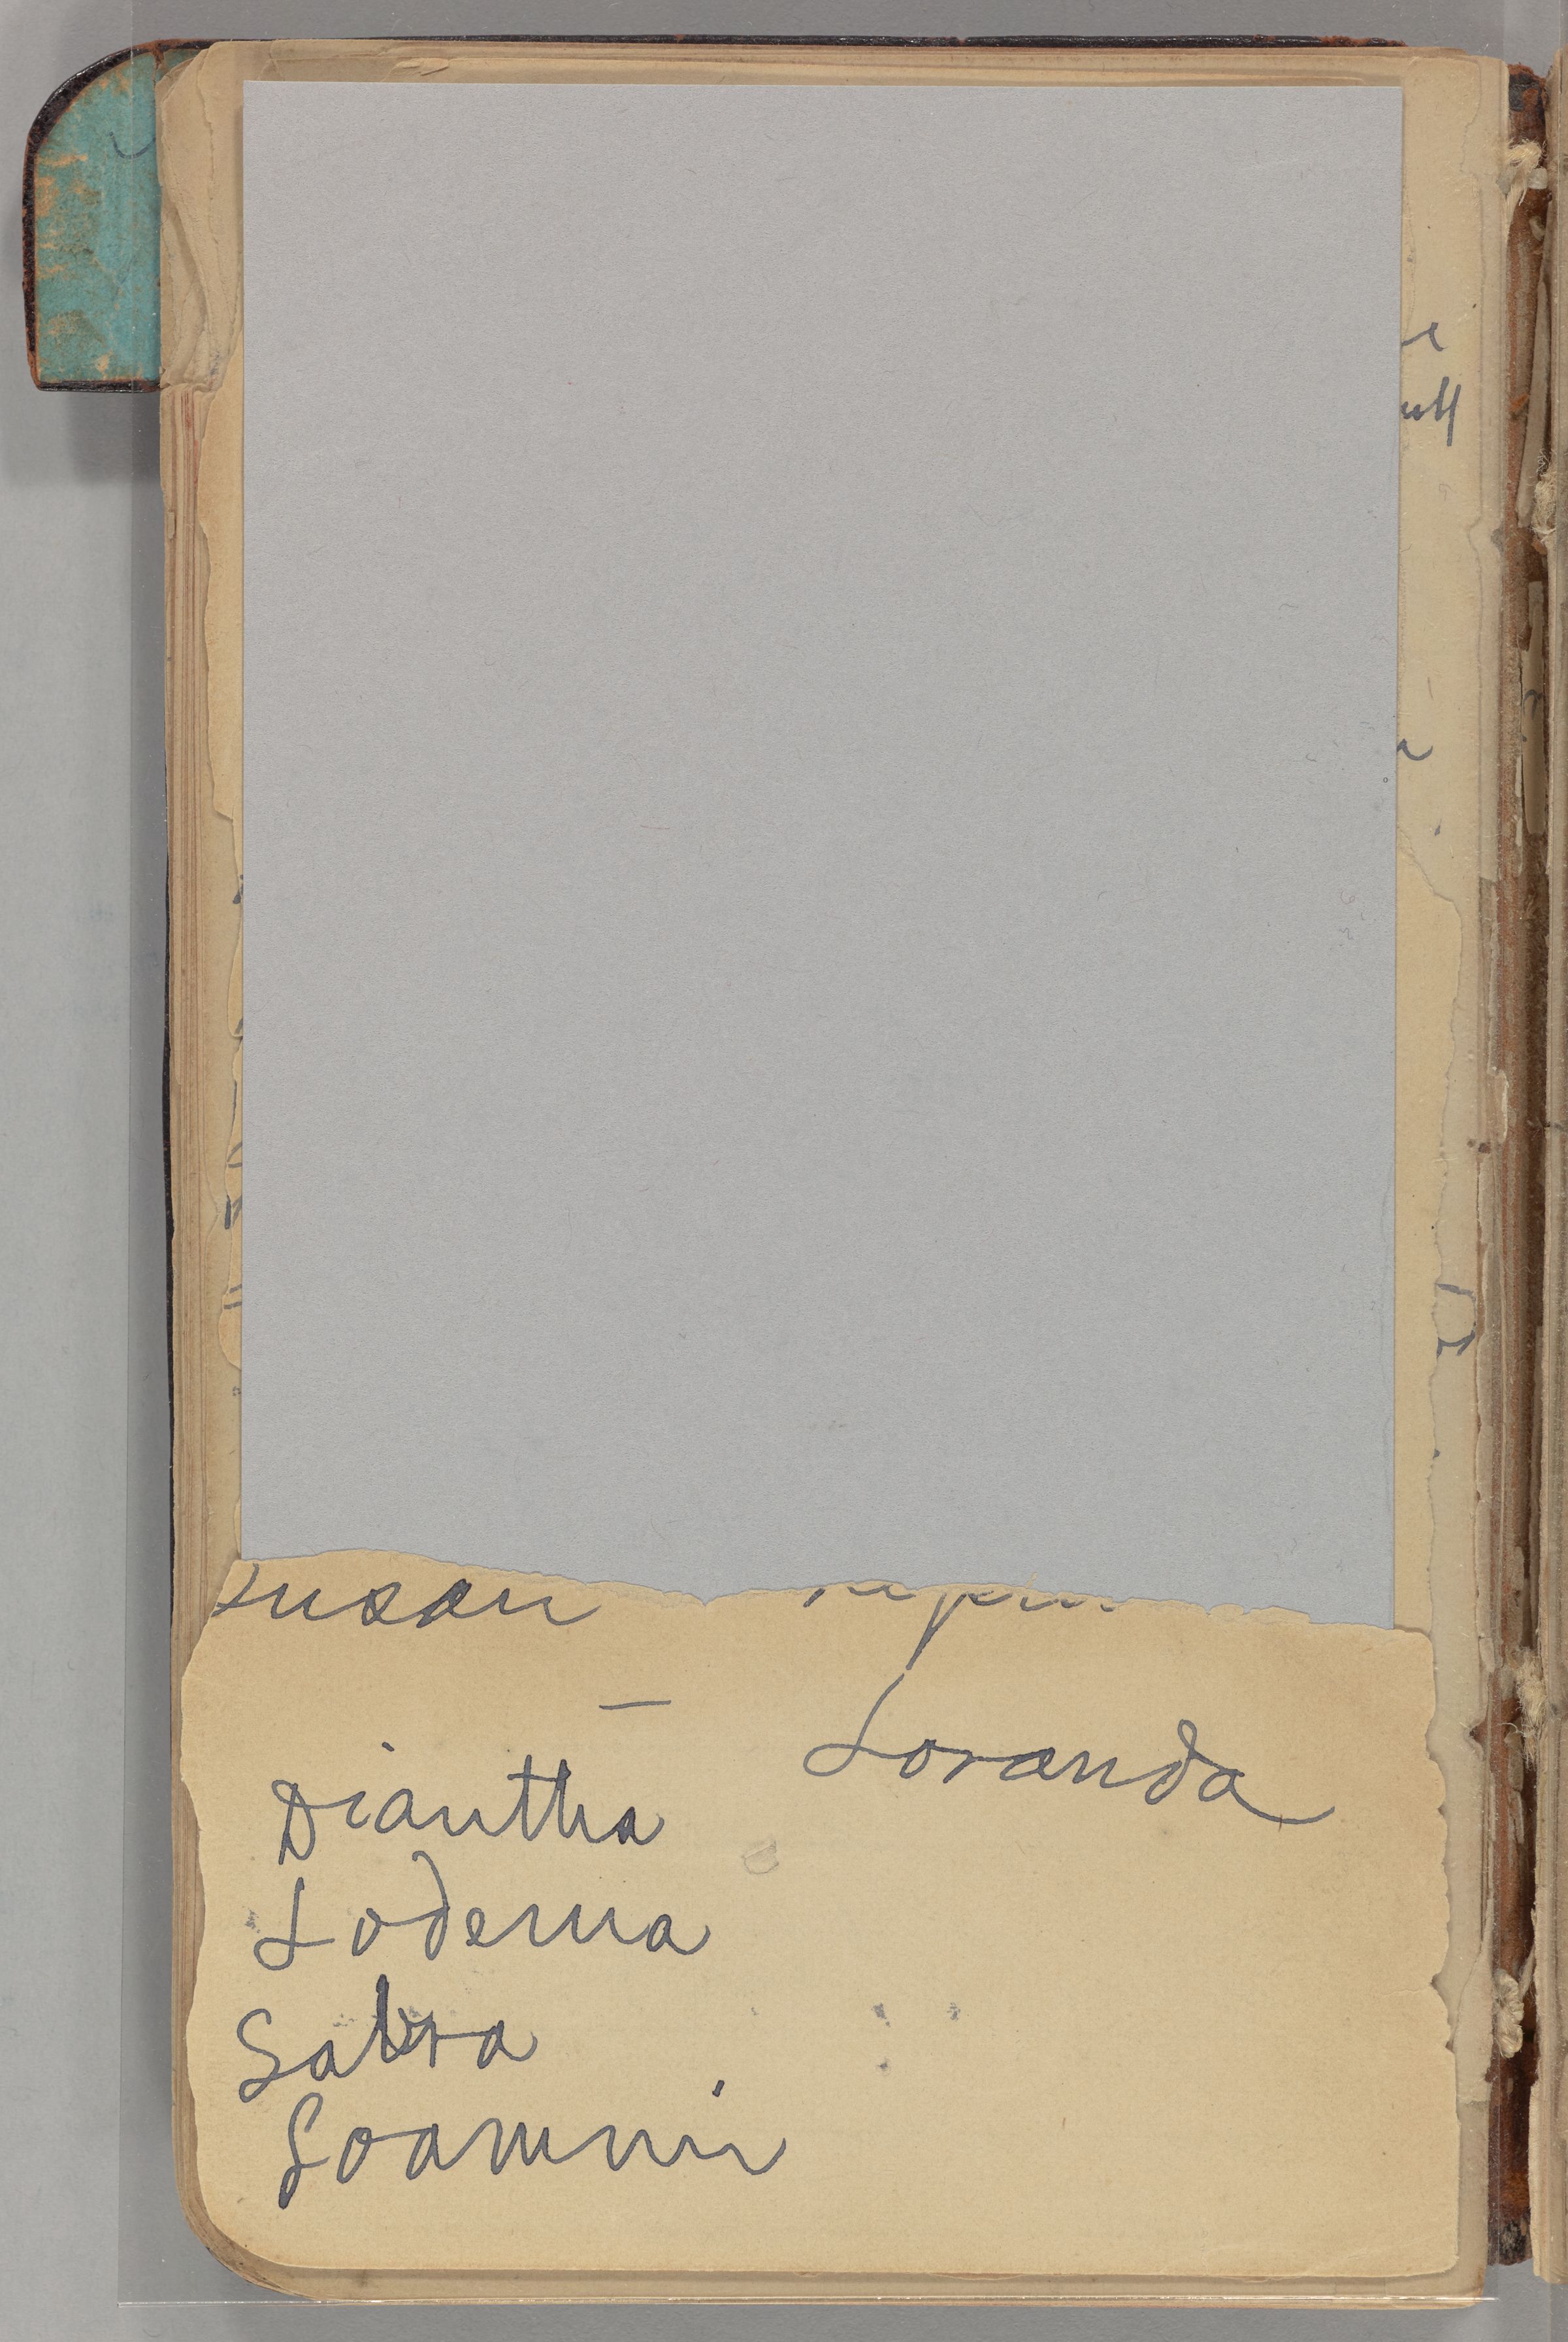 Susan
—
Loranda
Diantha
Loderna
Sabra
Soammi